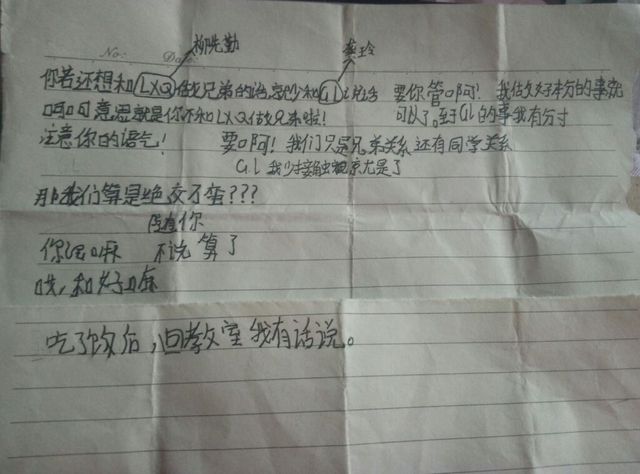 No:
Date:
柳先勤
龚玲
你若还想和LXQ做兄弟的话就少和GL说话 要你管啊! 我做好本分的事就
呵呵意思就是你不和LXQ做兄弟啦! 可以了。至于GL的事我有分寸
注意你的语气! 要啊! 我们只是兄弟关系还有同学关系
GL我少接触就是了
那我们算是绝交了蛮???
随你
你说嘛 不说算了
哎,和好嘛
吃了饭后,回教室我有话说。